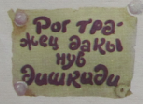 Рог тра-
жец дакы
нув
дишкиди